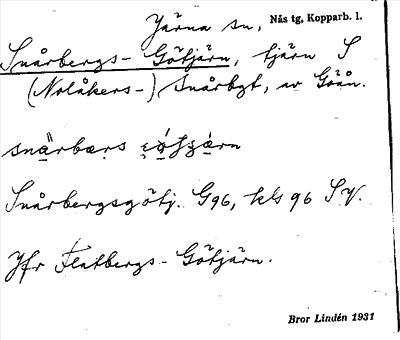 Järna sn, Nås tg, Kopparb. l.
Snårbergs-Götjärn, tjärn S
(Nolåkers-) Snårbgt, av Göån.
Snårbergsgötj. G96, kls 96 S.V.
Jfr Flatbergs-Götjärn.
Bror Lindén 1931